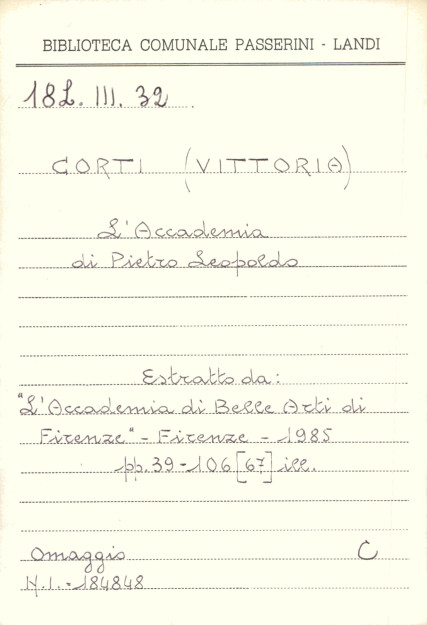 BIBLIOTECA COMUNALE PASSERINI - LANDI
18L. III. 32
CORTI (VITTORIA)
L'Accademia
di Pietro Leopoldo
Estratto da:
"L'Accademia di Belle Arti di
Firenze" - Firenze - 1985
pp. 39-106 [67] ill.
Omaggio C
N.I. - 184848